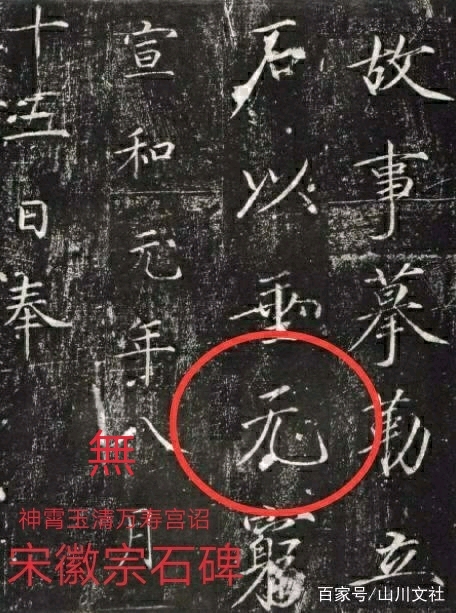 故事摹勒立
石以垂无窮
宣和元年八月
十五日奉
無
神霄玉清万寿宫诏
宋徽宗石碑
百家号/山川文社